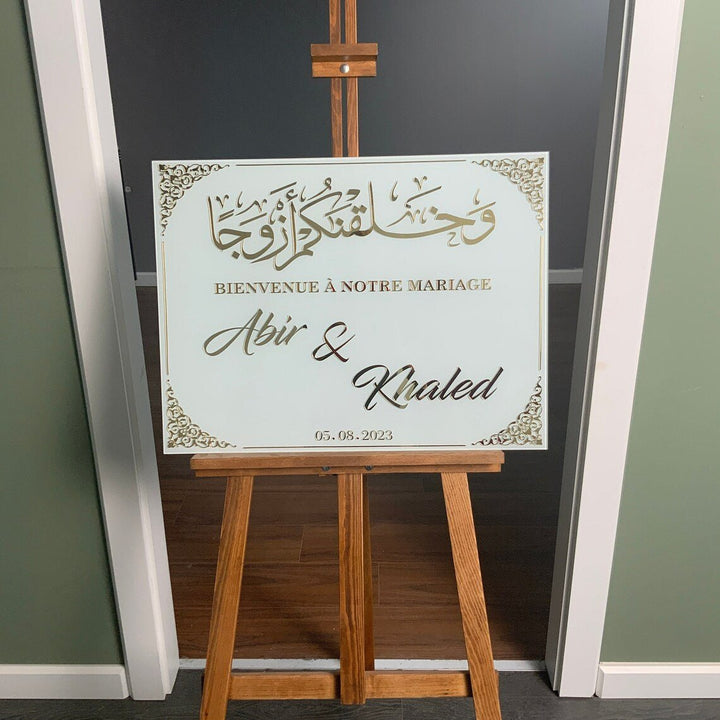 وَخَلَقنَكُم أَزْوَجًا
BIENVENUE À NOTRE MARIAGE
Abir &
Khaled
05.08.2023